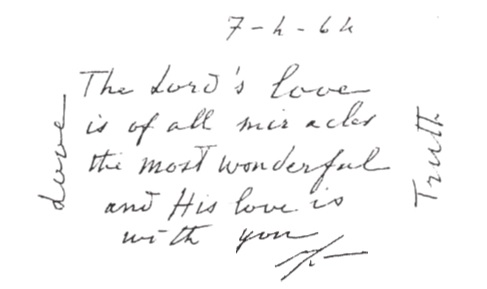 7-4-64
The Lord's love
is of all miracles
the most wonderful
and His love is
with you
Love
Truth